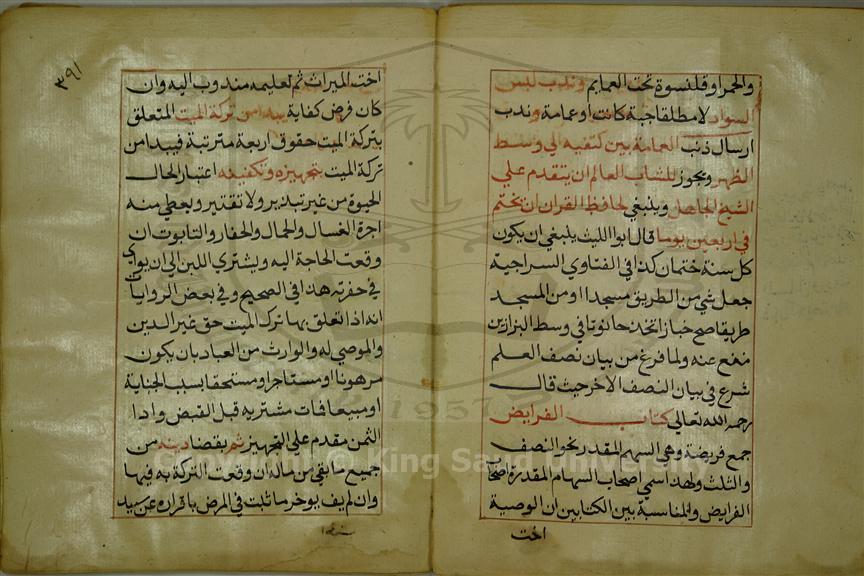 والحمر او قلنسوة تحت العمايم وندب لبس
السواد لا مطلقا جبة كانت او عمامة وندب
ارسال ذنب العمامة بين كتفيه الى وسط
الظهر ويجوز للشاب العالم ان يتقدم على
الشيخ الجاهل وينبغي لحافظ القران ان يختم
في اربعين يوما قال ابو الليث ينبغي ان يكون
كل سنة ختمان كذا في الفتاوي السراجية
جعل شي من الطريق مسجدا او من المسجد
طريقا صح خباز اتخذ حانوتا في وسط البزازين
منع عنه ولما فرغ من بيان نصف العلم
شرع في بيان النصف الاخر حيث قال
رحمه الله تعالى كتاب الفرايض
جمع فريضة وهي السهم المقدر نحو النصف
والثلث ولهذا سمي اصحاب السهام المقدرة اصحاب
الفرايض والمناسبة بين الكتابين ان الوصية
اخت
٣٩١
اخت الميراث ثم تعليمه مندوب اليه وان
كان فرض كفاية يبدا من تركة الميت المتعلق
بتركة الميت حقوق اربعة مترتبة فيبدا من
تركة الميت بتجهيزه وتكفينه اعتبار الحال
الحيوة من غير تبذير ولا تقتير ويعطي منه
اجرة الغسال والحمال والحفار والتابوت ان
وقعت الحاجة اليه ويشتري اللبن الى ان يواري
في حفرته هذا في الصحيح وفي بعض الروايات
انه اذا تعلق بما ترك الميت حق غير الدين
والموصي له والوارث من العباد بان يكون
مرهونا او مستاجرا او مستحقا بسبب الجناية
او مبيعا فات مشتريه قبل القبض وادا
الثمن مقدم على التجهيز ثم بقضا دينه من
جميع ما بقي من ماله ان وقعت التركة به فيها
وان لم يف يوخر ما ثبت في المرض باقراره عن
King Saud University
1957